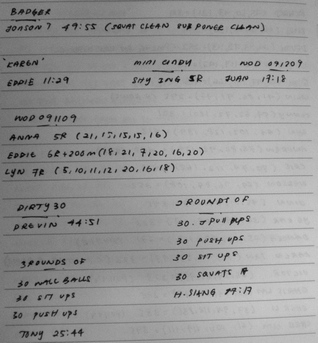 BADGER
JONSON 7 49:55 (SQUAT CLEAN SUB POWER CLEAN)
'KAREN'
EDDIE 11:29
MINI CINDY
SHY ING 5R
WOD 091209
JUAN 17:18
WOD 091109
ANNA 5R (21, 17, 15, 15, 16)
EDDIE 6R+200m (18, 21, 7, 20, 16, 20)
LYN 7R (5, 10, 11, 12, 20, 16, 18)
DIRTY 30
44:51
3 ROUNDS OF
30 WALL BALLS
30 SIT UPS
30 PUSH UPS
TONY 25:44
ROUNDS OF
30 PULL UPS
30 PUSH UPS
30 SIT UPS
30 SQUATS
H. SIANG